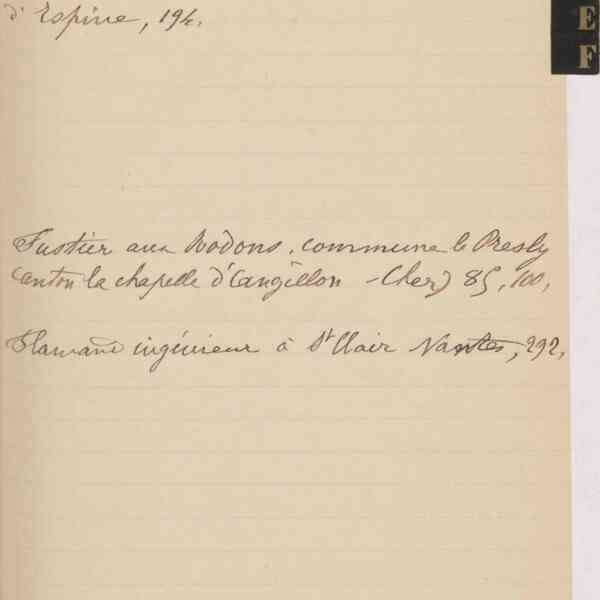 E
F
d'Espine, 194.
Fustier aux Rodons, commune le Presly
canton la chapelle d'Cangillon - Cher) 85, 100,
Flamand ingénieur à St Clair Nantes, 292,